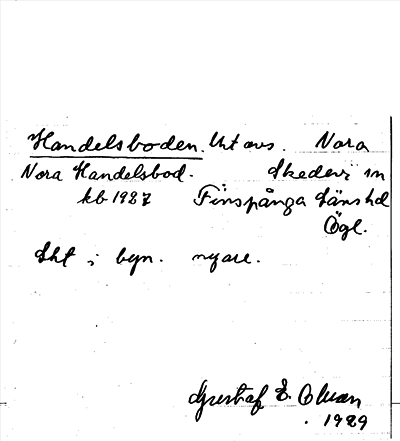 Handelsboden. Ut avs. Nora
Nora Handelsbod. Skedevi sn
kb 1927 Finspånga länshd
Ögl.
Lht i byn. nyare.
Gustaf E. Olsson
1929